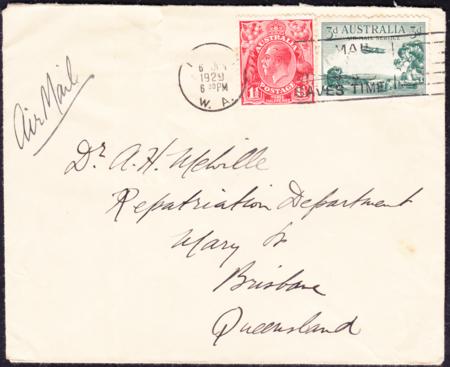 AUSTRALIA
POSTAGE
1½
1½
3d AUSTRALIA 3d
AIR MAIL SERVICE
6
1929
6 30 PM
W. A.
MAIL
SAVES TIME
Air Mail
Dr. A. H. Melville
Repatriation Department
Mary St
Brisbane
Queensland